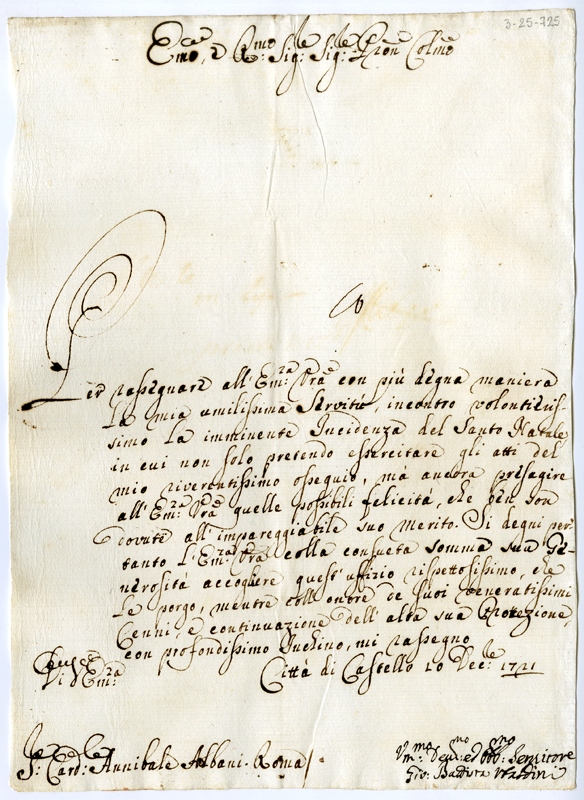 3-25-725
Em̃o, e R.mo Sig.re Sig.re P̃ron Colmo
Per rassegnare all'Em.za Vr̃a con più degna maniera
la mia umilissima Servitù, incontro volontieris-
simo la imminente Incidenza del Santo Natale,
in cui non solo pretendo essercitare gli atti del
mio riverentissimo ossequio, mà ancora presagire
all'Em.za Vr̃a quelle possibili felicità, che ben son
dovute all'impareggiabile suo merito. Si degni per
tanto l'Em.za Vr̃a colla consueta somma sua Ge-
nerosità accogliere quest'uffizio rispettosissimo, che
le porgo, mentre coll'onore de suoi veneratissimi
Cenni, e continuazione dell'alta sua Protezione,
con profondissimo Inchino, mi rassegno
Di V. Em.za
Città di Castello 20 Dec.re 1721
S.r Card.le Annibale Albani. Roma
Vm.mo Deu.mo et Obb.mo Servitore
Gio: Battista